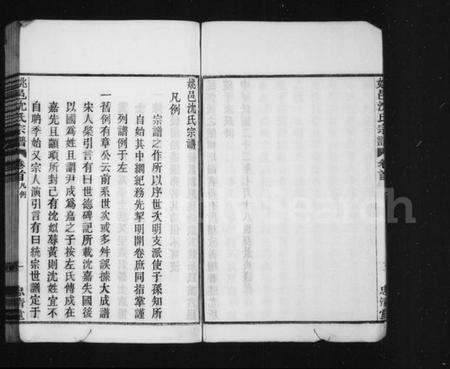 姚邑沈氏宗譜
凡例
宗譜之作所以序世次明支派使子孫知所
自始其中綱紀務先挈明開卷庶同指掌謹
列譜例于左
一舊例有章公云前系世次或多舛誤據大成譜
宋人槩引言有曰世德碑記所載沈嘉失國後
以國為姓且謂尹戍為嘉之子按左氏傳戍在
嘉先且顓頊所封已有沈姒蓐黃則沈姓宜不
自聃季始又宗人演引言有曰統宗世譜定于
姚邑沈氏宗譜
卷首
凡例
一
忠清堂
姚邑沈氏宗譜
卷首